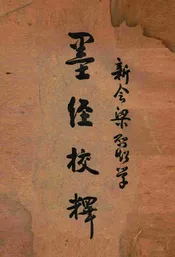 新會梁啟超著
墨經校釋